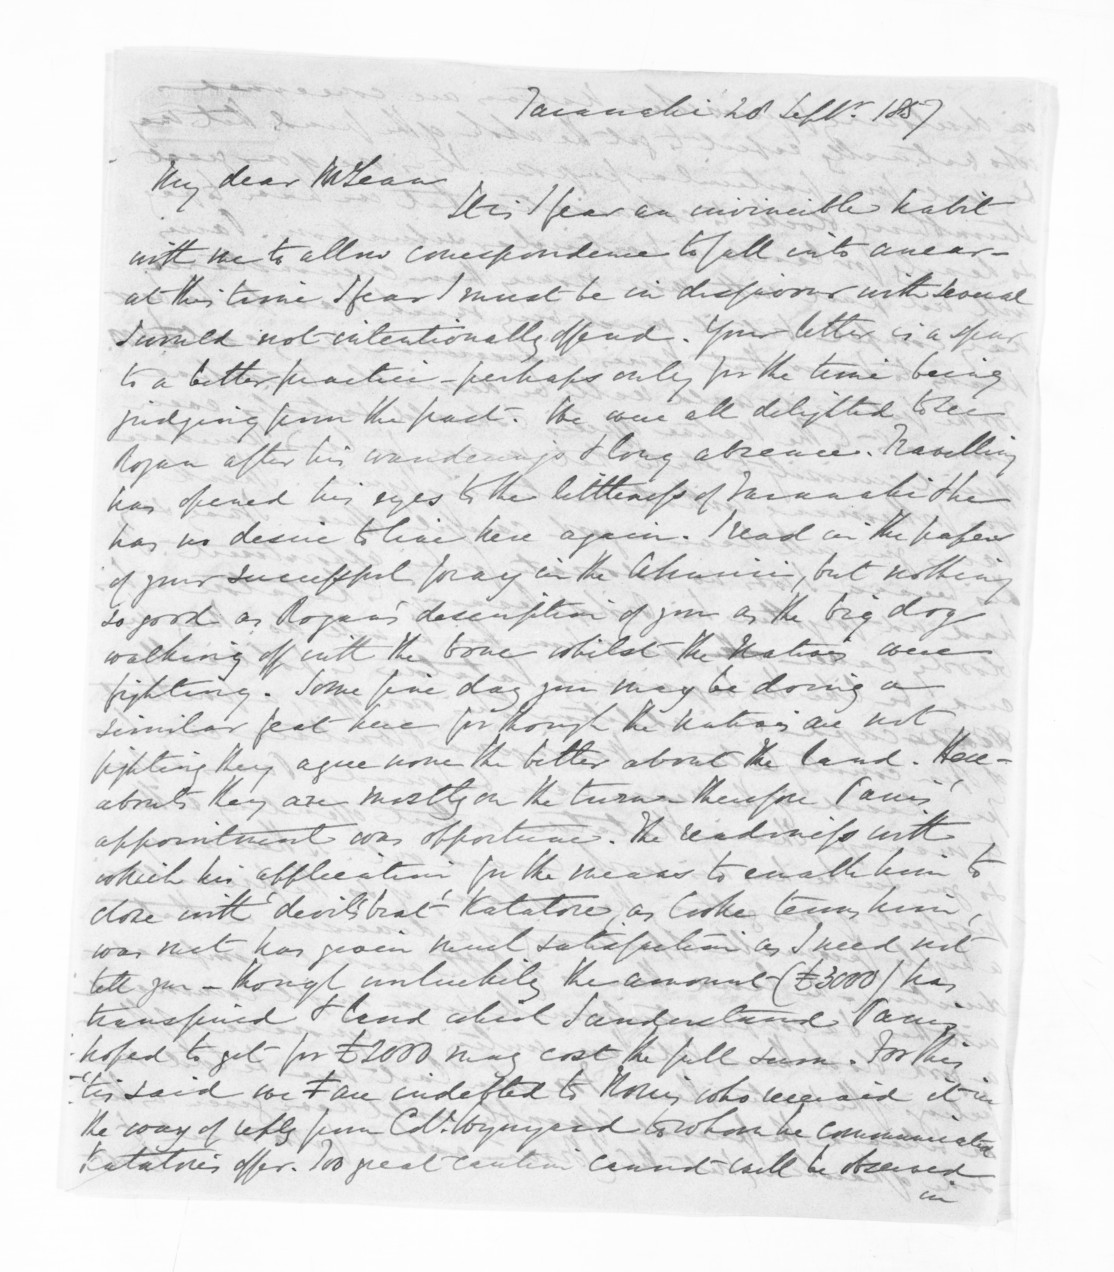 Taranaki 28 Septr. 1857
My dear McLean
It is I fear an invincible habit
with me to allow correspondence to fall into arrear -
at this time I fear I must be in disfavour with several
I would not intentionally offend. Your letter is a spur
to a better practice - perhaps only for the time being
judging from the past. We were all delighted to see
Rogan after his wanderings & long absence. Travelling
has opened his eyes to the littleness of Taranaki & he
has no desire to live here again. I read in the papers
of your successful foray in the Ahuriri, but nothing
so good as Rogan's description of you as the big dog
walking off with the bone whilst the Natives were
fighting. Some fine day you may be doing a
similar feat here for though the natives are not
fighting they agree none the better about the land. Here-
abouts they are mostly on the turn - therefore Parris'
appointment was opportune. The readiness with
which his application for the means to enable him to
close with 'devil's brat' Katatore, as Cooke terms him,
was met has given much satisfaction as I need not
tell you - though unluckily the amount (£3000) has
transpired & land which I understand Parris
hoped to get for £2000 may cost the full sum. For this
'tis said we are indebted to Norris who received it in
the way of reply from Col. Wynyard to whom he communicated
Katatore's offer. Too great caution cannot well be observed
in